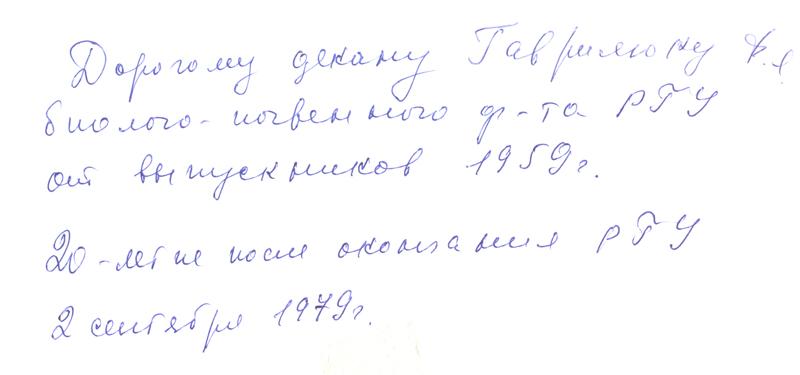 Дорогому декану Гаврилюку Ф.Я.
биолого-почвенного ф-та РГУ
от выпускников 1959г.
20-летие после окончания РГУ
2 сентября 1979г.